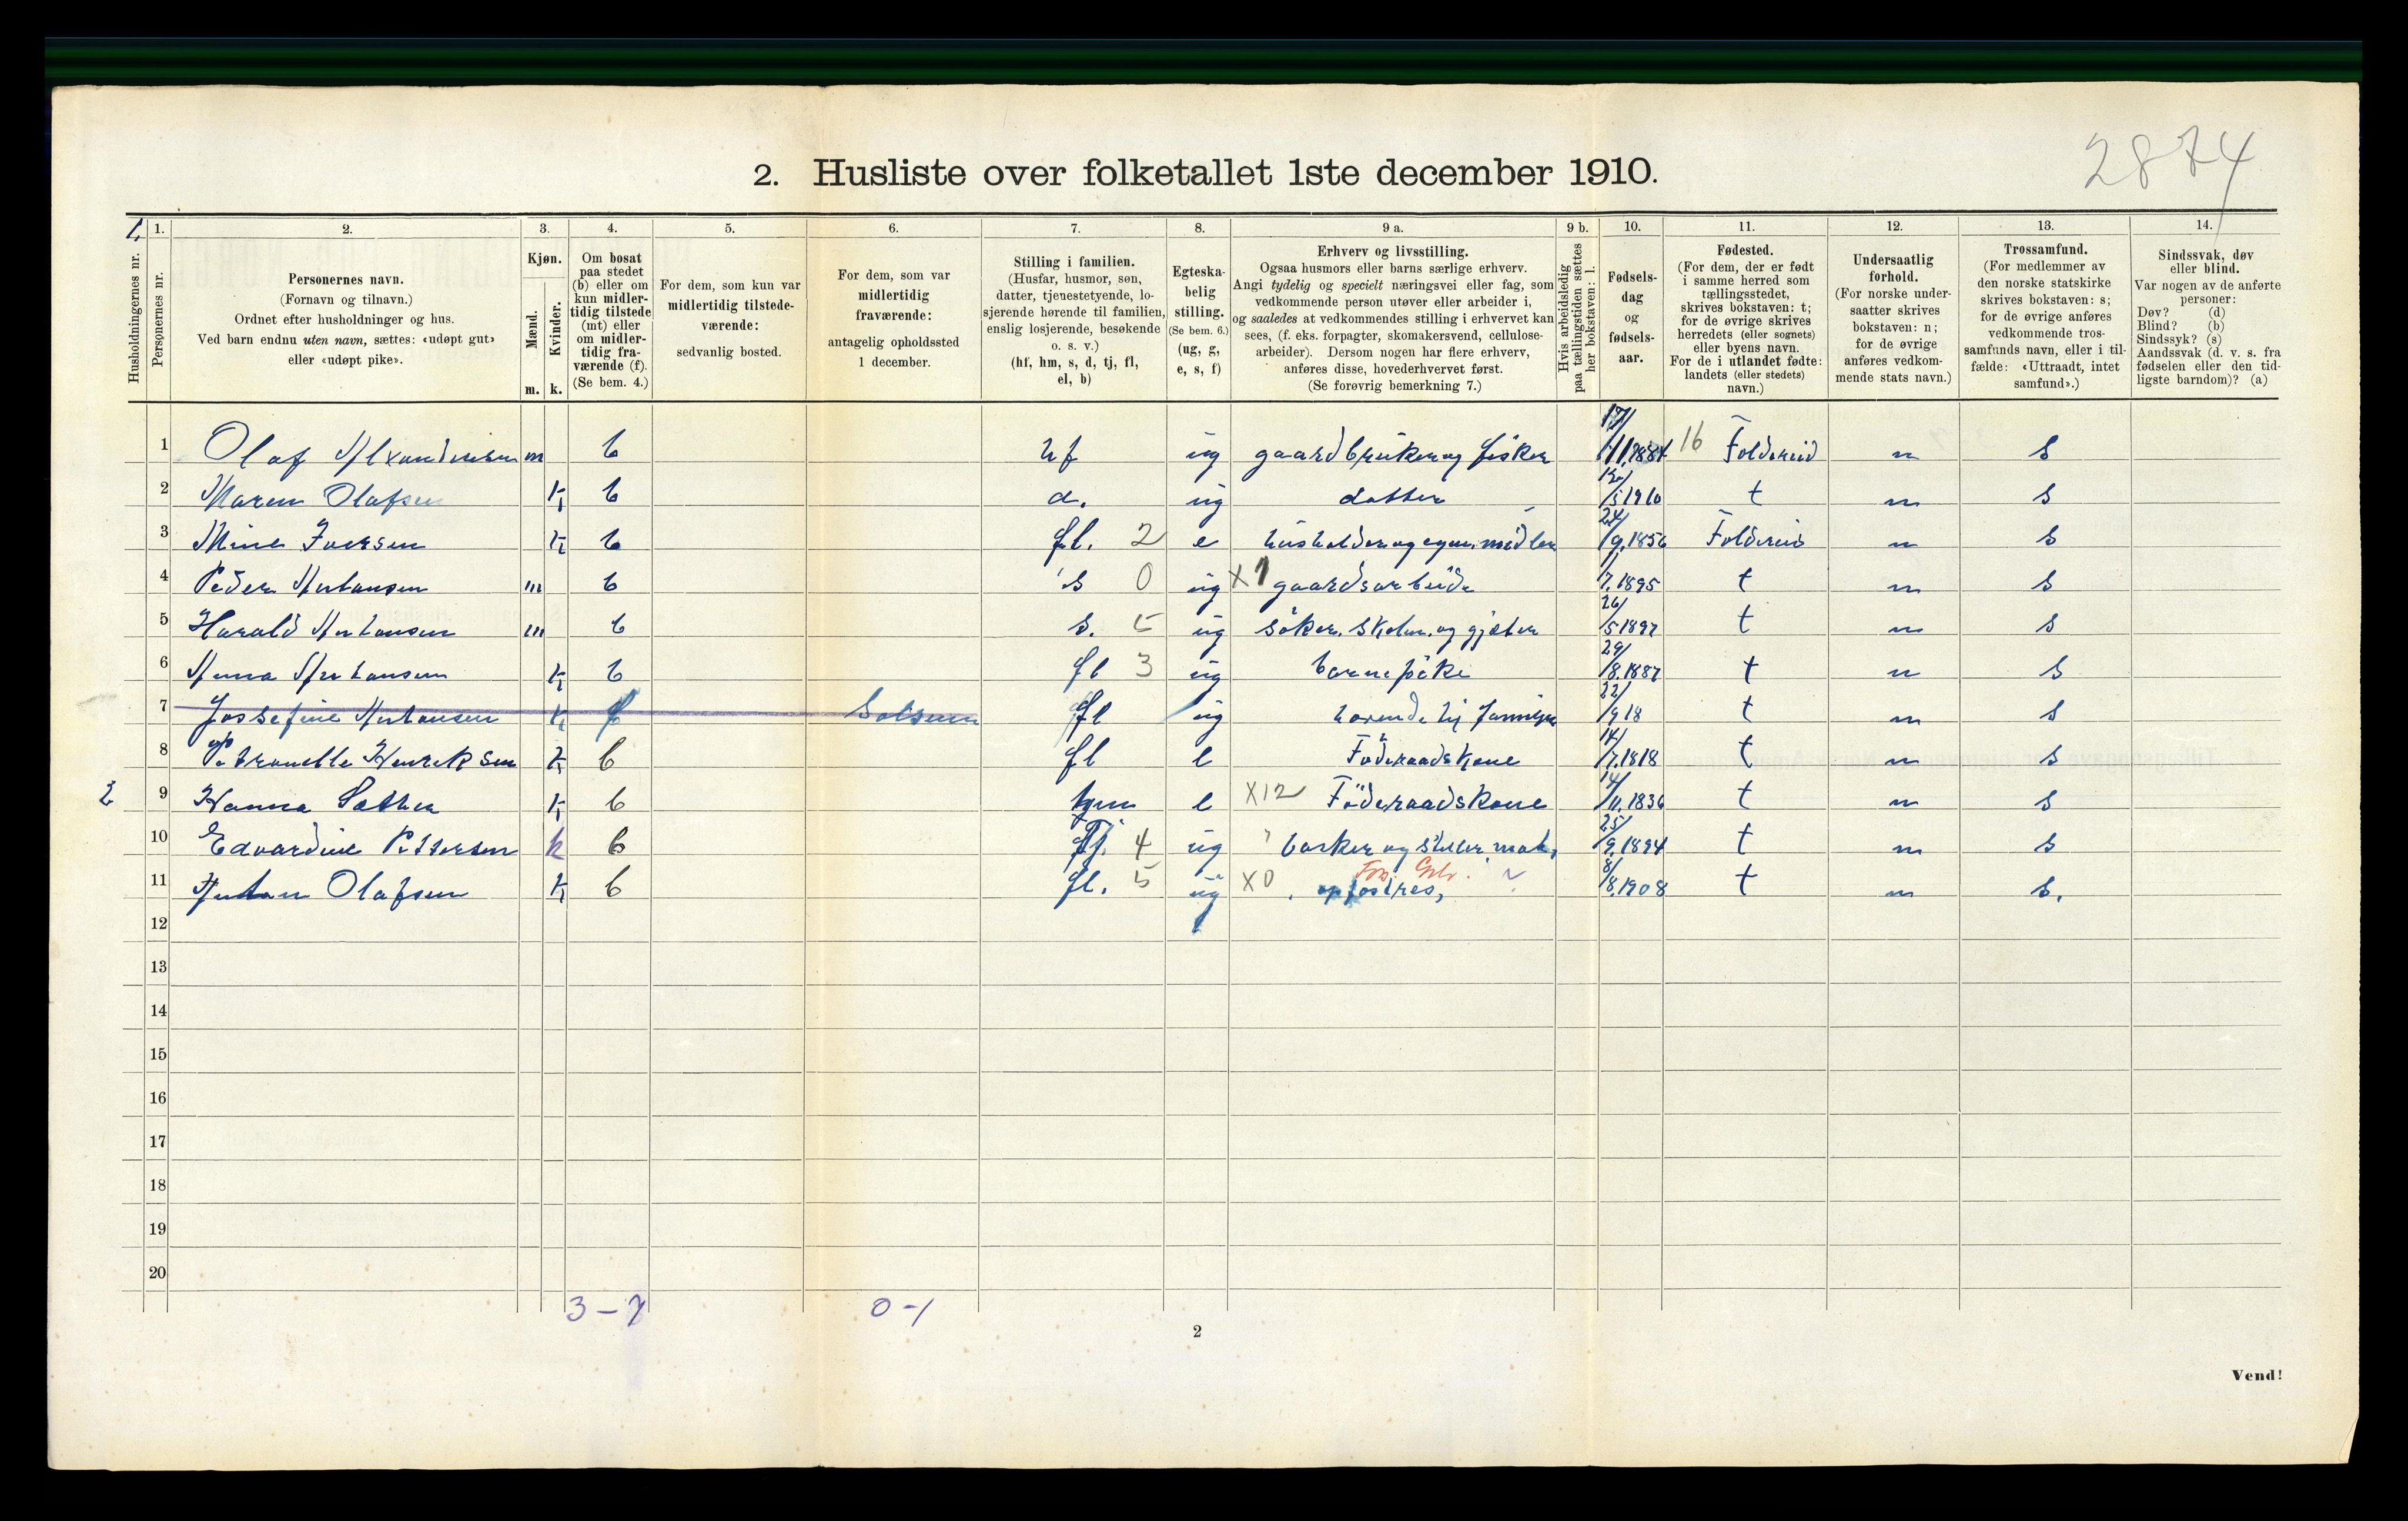 2874
2. Husliste over folketallet 1ste december 1910.
1. 2. 3. 4. 5. 6. 7. 8. 9 a. 9 b. 10. 11. 12. 13. 14.
Husholdningernes nr.
Personernes nr.
Personernes navn.
(Fornavn og tilnavn.)
Ordnet efter husholdninger og hus.
Ved barn endnu uten navn, sættes: «udøpt gut»
eller «udøpt pike».
Kjøn.
Mænd.
m.
Kvinder.
k.
Om bosat
paa stedet
(b) eller om
kun midler-
tidig tilstede
(mt) eller
om midler-
tidig fra-
værende (f).
(Se bem. 4.)
For dem, som kun var
midlertidig tilstede-
værende:
sedvanlig bosted.
For dem, som var
midlertidig
fraværende:
antagelig opholdssted
1 december.
Stilling i familien.
(Husfar, husmor, søn,
datter, tjenestetyende, lo-
sjerende hørende til familien,
enslig losjerende, besøkende
o. s. v.)
(hf, hm, s, d, tj, fl,
el, b)
Egteska-
belig
stilling.
(Se bem. 6.)
(ug, g,
e, s, f)
Erhverv og livsstilling.
Ogsaa husmors eller barns særlige erhverv.
Angi tydelig og specielt næringsvei eller fag, som
vedkommende person utøver eller arbeider i,
og saaledes at vedkommendes stilling i erhvervet kan
sees, (f. eks. forpagter, skomakersvend, cellulose-
arbeider). Dersom nogen har flere erhverv,
anføres disse, hovederhvervet først.
(Se forøvrig bemerkning 7.)
Hvis arbeidsledig
paa tællingstiden sættes
her bokstaven: l.
Fødsels-
dag
og
fødsels-
aar.
Fødested.
(For dem, der er født
i samme herred som
tællingsstedet,
skrives bokstaven: t;
for de øvrige skrives
herredets (eller sognets)
eller byens navn.
For de i utlandet fødte:
landets (eller stedets)
navn.)
Undersaatlig
forhold.
(For norske under-
saatter skrives
bokstaven: n;
for de øvrige
anføres vedkom-
mende stats navn.)
Trossamfund.
(For medlemmer av
den norske statskirke
skrives bokstaven: s;
for de øvrige anføres
vedkommende tros-
samfunds navn, eller i til-
fælde: «Uttraadt, intet
samfund».)
Sindssvak, døv
eller blind.
Var nogen av de anførte
personer:
Døv? (d)
Blind? (b)
Sindssyk? (s)
Aandssvak (d. v. s. fra
fødselen eller den tid-
ligste barndom)? (a)
1 Olaf m b hf ug gaardbruker og fisker 17/11 1884 16 Foldereid n s
2 Maren Olafsen k b d. ug datter 1910 t n s
3 Mine Iversen k b fl. 2 e husholder og egne midler 24/9.1856 Foldereid n s
4 Peder m b s 0 ug X 1 gaardsarbeide 7.1895 t n s
5 Harald m b s. 5 ug söker. Skolen. og gjæter 26/5 1897 t n s
6 Anna k b fl 3 ug barnepike 29/8.1887 t n s
7 Jossefine k f Solsem fl ug 22/9 18 t n s
8 Petronelle Henriksen k b fl e Föderaadskone 14/7.1818 t n s
2 9 Hanna Sæther k b e X12 Föderaadskone 14/11.1836 t n s
10 Edvardine Pettersen k b tj. 4 ug 25/9.1894 t n s
11 Olafsen k b fl. 5 ug X0 opfostres, 8/8.1908 t n s.
12
13
14
15
16
17
18
19
20
3 - 7
0 - 1
2
Vend!